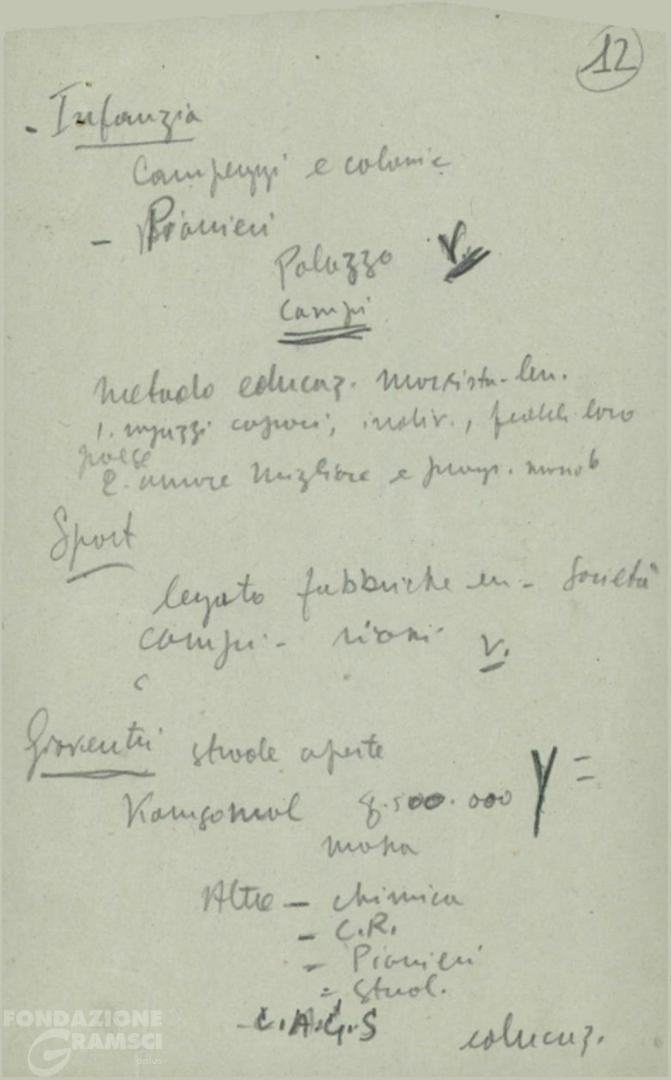 12
- Infanzia
Campeggi e colonie
- Pionieri
Palazzo V.
Campi
metodo educaz. marxista-len.
1. ragazzi capaci, indiv., fedeli loro
paese
2. amore migliore e progr. mondo
Sport
legato fabbriche en - Società
campi - rioni V.
Gioventù strade aperte
Komsomol 8.500.000
Altre - chimica
- C.R.
- Pionieri
- stud.
- C.A.G.S educaz.
FONDAZIONE
GRAMSCI
onlus